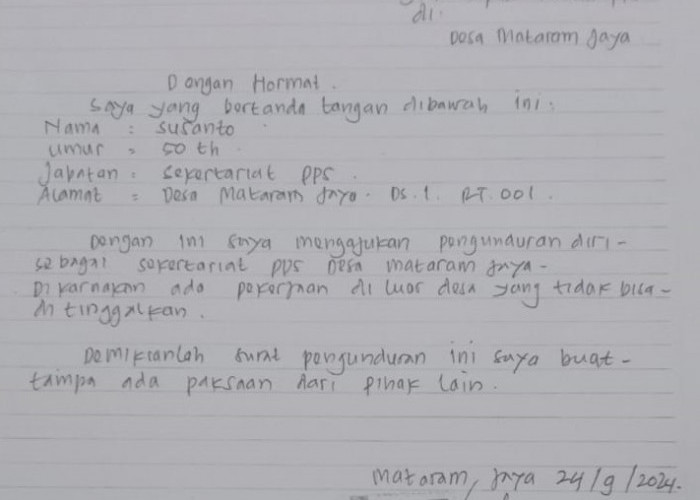 di.
Desa Mataram Jaya
Dengan Hormat.
Saya yang bertanda tangan dibawah ini:
Nama : Susanto
Umur : 50 th
Jabatan : Sekertariat PPS.
Alamat : Desa Mataram Jaya. Ds. 1. RT. 001.
Dengan ini saya mengajukan pengunduran diri-
sebagai sekertariat PPS Desa mataram Jaya-
Dikarnakan ada pekerjaan di luar desa yang tidak bisa-
di tinggalkan.
Demikianlah surat pengunduran ini saya buat-
tampa ada paksaan dari pihak lain.
Mataram, Jaya 24/9/2024.